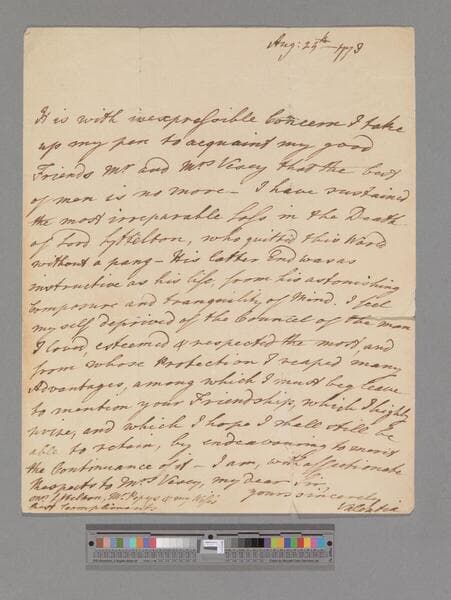 Aug: 24th 1773
It is with inexpressible Concern I take
up my pen to acquaint my good
Friends Mr and Mrs Vesey that the best
of men is no more - I have sustained
the most irreparable Loss in the Death
of Lord Lyttelton, who quitted this World
without a pang - His latter End was as
instructive as his life, from his astonishing
Composure and tranquility of Mind. I feel
my self deprived of the Council of the man
I loved, esteemed & respected the most, and
from whose Protection I reaped many
Advantages, among which I must beg leave
to mention your Friendship, which I highly
prize, and which I hope I shall still be
able to retain, by endeavouring to merit
the Continuance of it - I am, with affectionate
Respects to Mrs Vesey, my dear Sir,
yours sincerely
Valentia
Mr Lyttelton, Mr Pepys & my Wife's
best Compliments